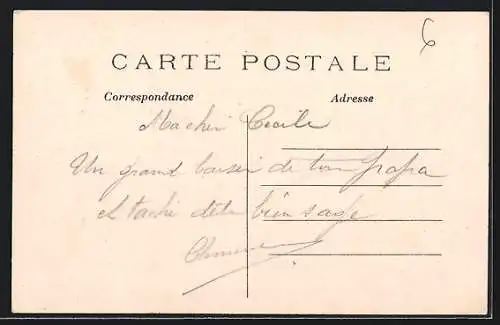 6
CARTE POSTALE
Correspondance Adresse
Ma cheri Cecile
Un grand baiser de ton papa
et tache dete bien sage